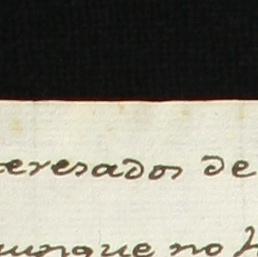 eresados de
unque no